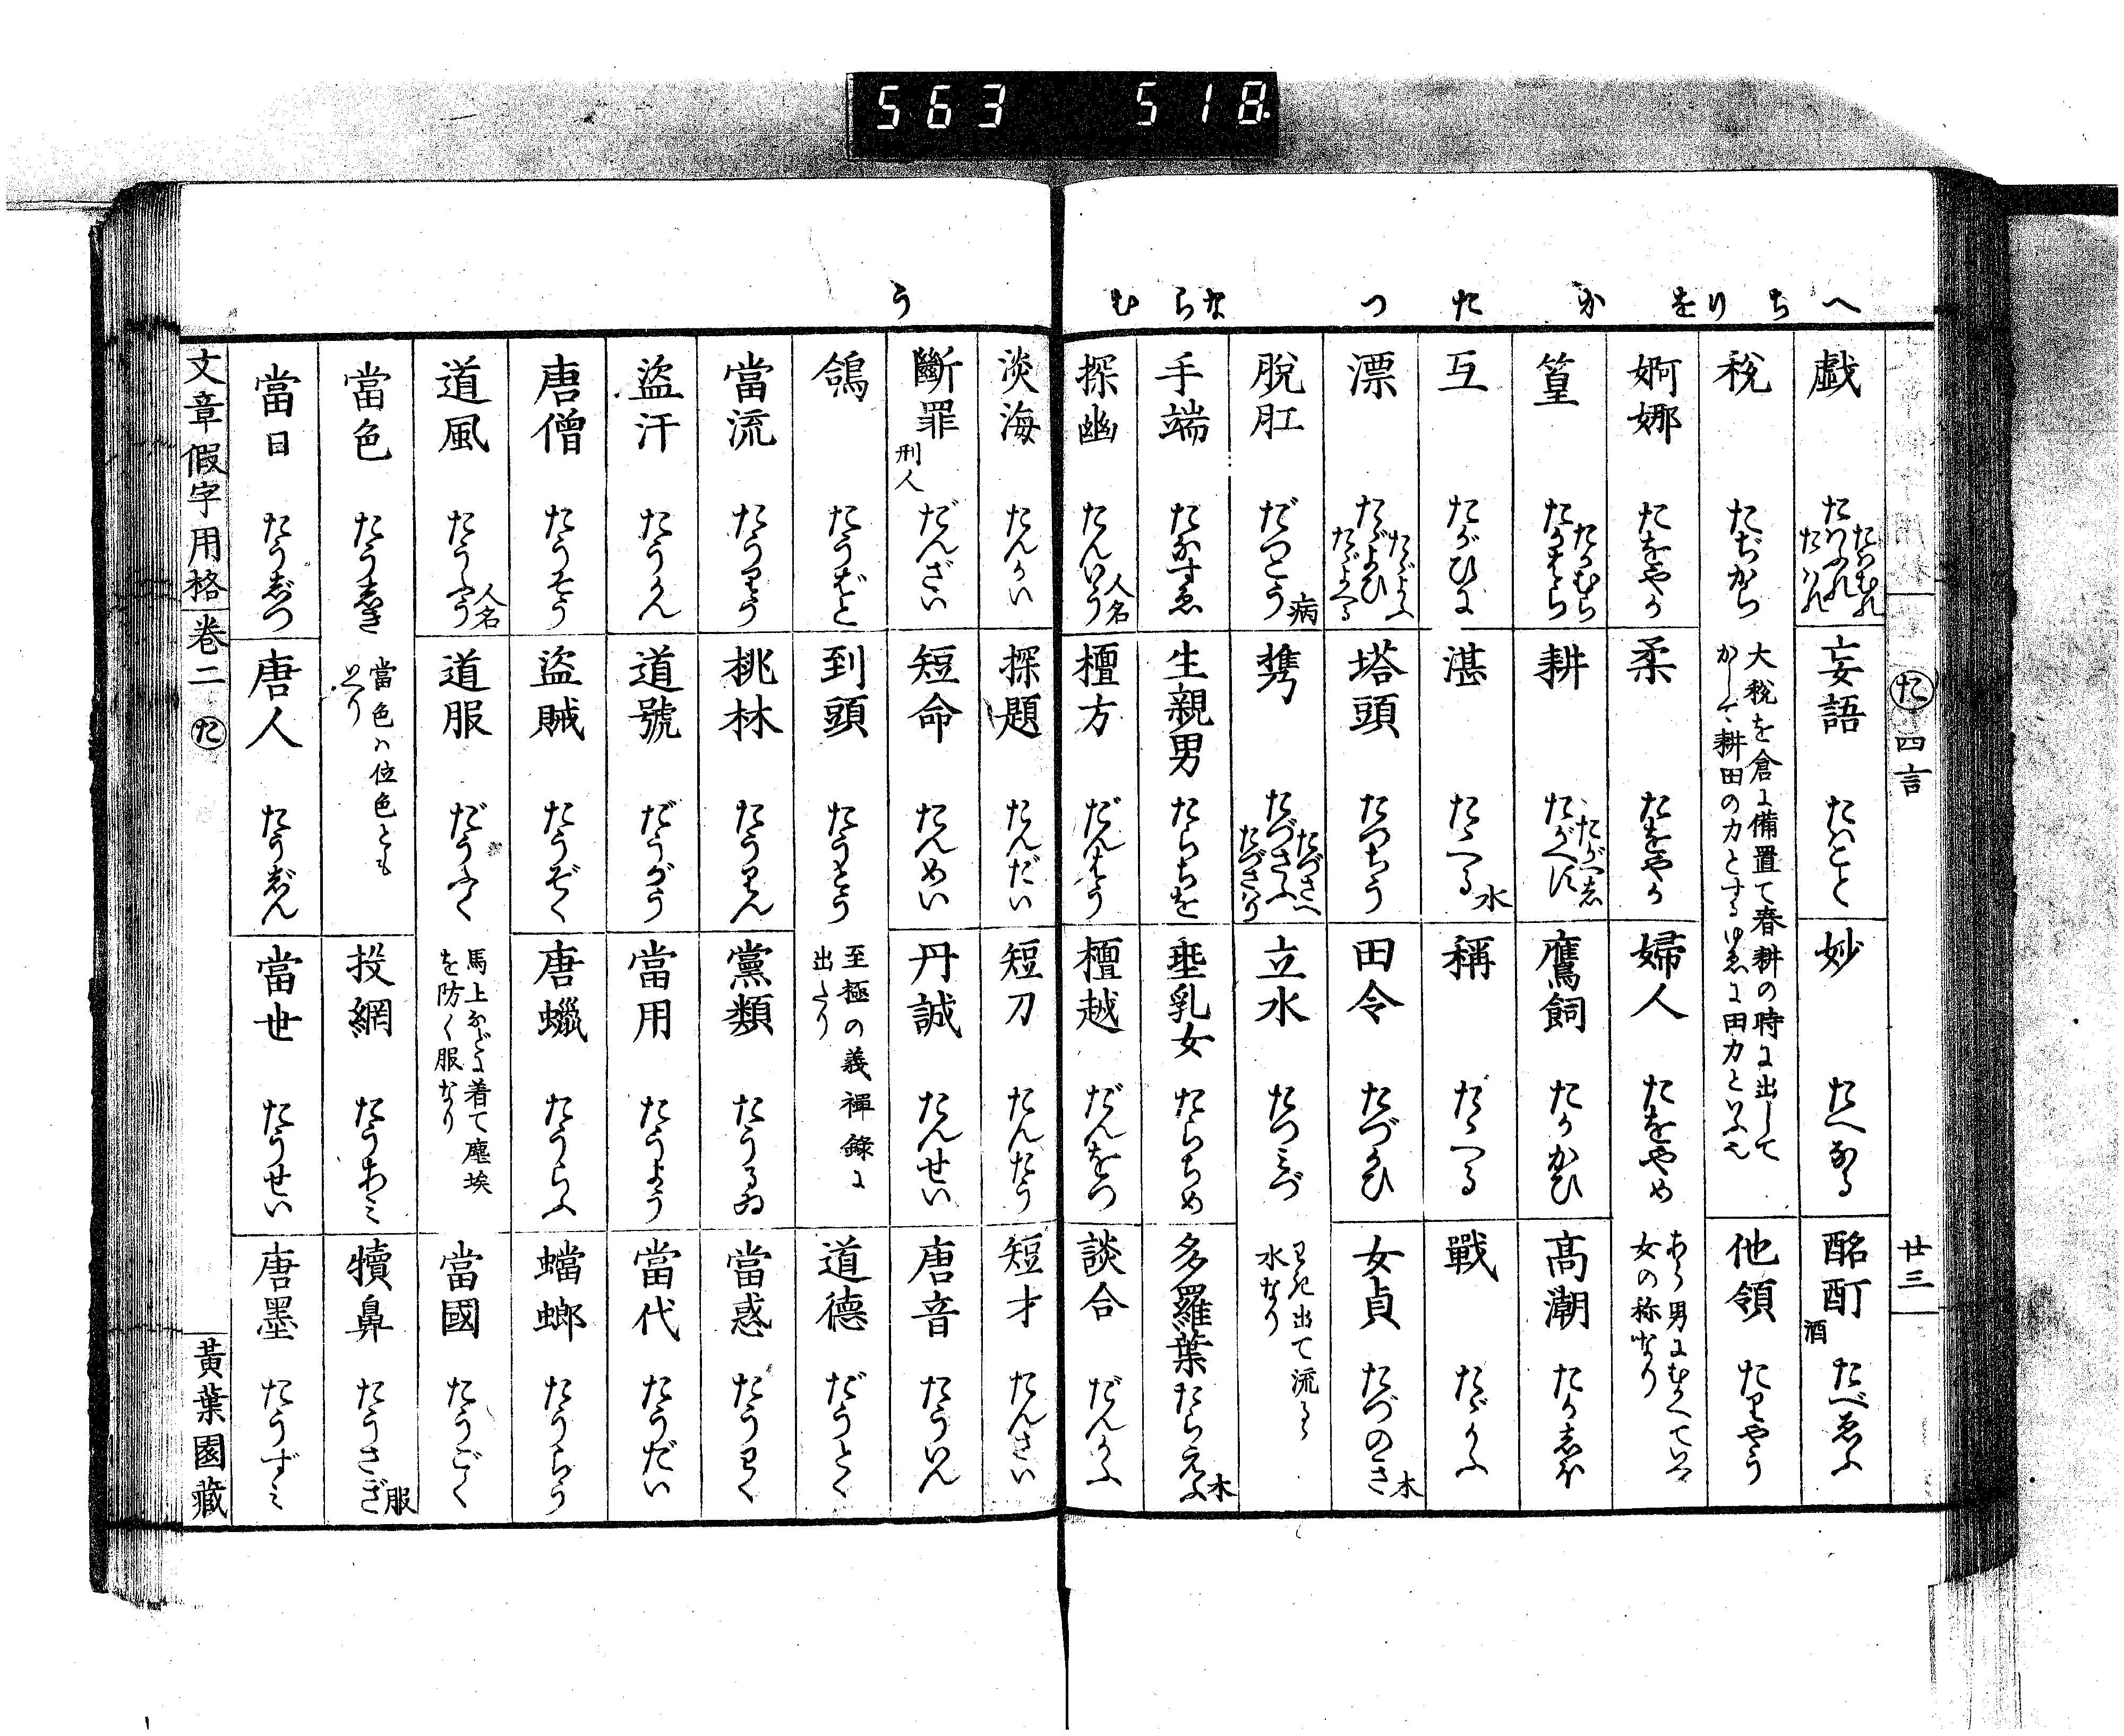 563 518
へ ち り を か た つ な ら む
た 四言
廿三
戯 たはふれ たはむれ たはれ
妄語 たはこと
妙 たへなる
酩酊 酒 たべゑふ
税 たぢから 大税を倉に備置て春耕の時に出して
かし〴〵耕田の力とするゆゑに田力といふ也
他領 たりやう
婀娜 たをやか
柔 たをやか
婦人 たをやめ あら男にむかへていふ
女の称なり
篁 たかはら たかむら
耕 たがへす たがへし
鷹飼 たかかひ
高潮 たかしほ
互 たがひに
湛 たゝへる 水
稱 たゝへる
戰 たゝかふ
漂 たゞよひ たゞよふ たゞよへる
塔頭 たつちう
田令 たづかひ
女貞 たづのき 木
脱肛 だつこう 病
携 たづさふ たづさへ たづさはり
立水 たつみづ わき出て流るゝ
水なり
手端 たなすゑ
生親男 たらちを
垂乳女 たらちめ
多羅葉 たらえふ 木
探幽 たんいう 人名
檀方 だんはう
檀越 だんをつ
談合 だんかふ
う
淡海 たんかい
探題 たんだい
短刀 たんたう
短才 たんさい
斷罪 刑人 だんざい
短命 たんめい
丹誠 たんせい
唐音 たういん
鴿 たうばと
到頭 たうとう 至極の義禅録に
出たり
道德 だうとく
當流 たうりう
桃林 たうりん
黨類 たうるゐ
當惑 たうわく
盗汗 たうかん
道號 だうがう
當用 たうよう
當代 たうだい
唐僧 たうそう
盗賊 たうぞく
唐蠟 たうらふ
蟷螂 たうらう
道風 たうふう 人名
道服 だうふく 馬上などに着て塵埃
を防ぐ服なり
當國 たうごく
當色 たうしき 當色は位色とも
いへり
投網 たうあみ
犢鼻 たうさぎ 服
當日 たうじつ
唐人 たうじん
當世 たうせい
唐墨 たうずみ
文章假字用格 巻二 た 黄葉園藏